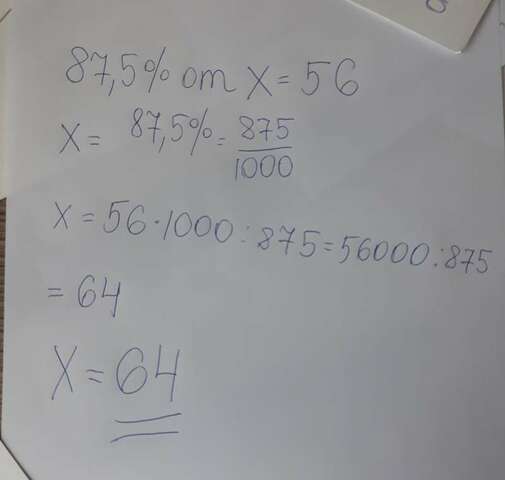 87,5% от X = 56
X = 87,5% = 875/1000
X = 56·1000:875=56000:875
= 64
X = 64